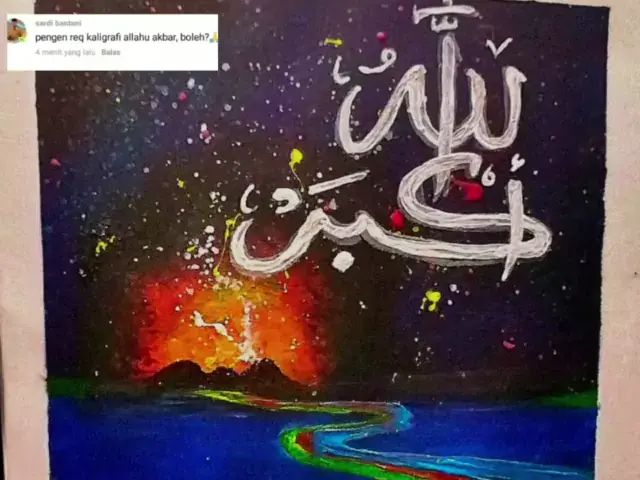 sardi bantani
pengen req kaligrafi allahu akbar, boleh?🙏
4 menit yang lalu Balas
اللهُ
أَكْبَرُ